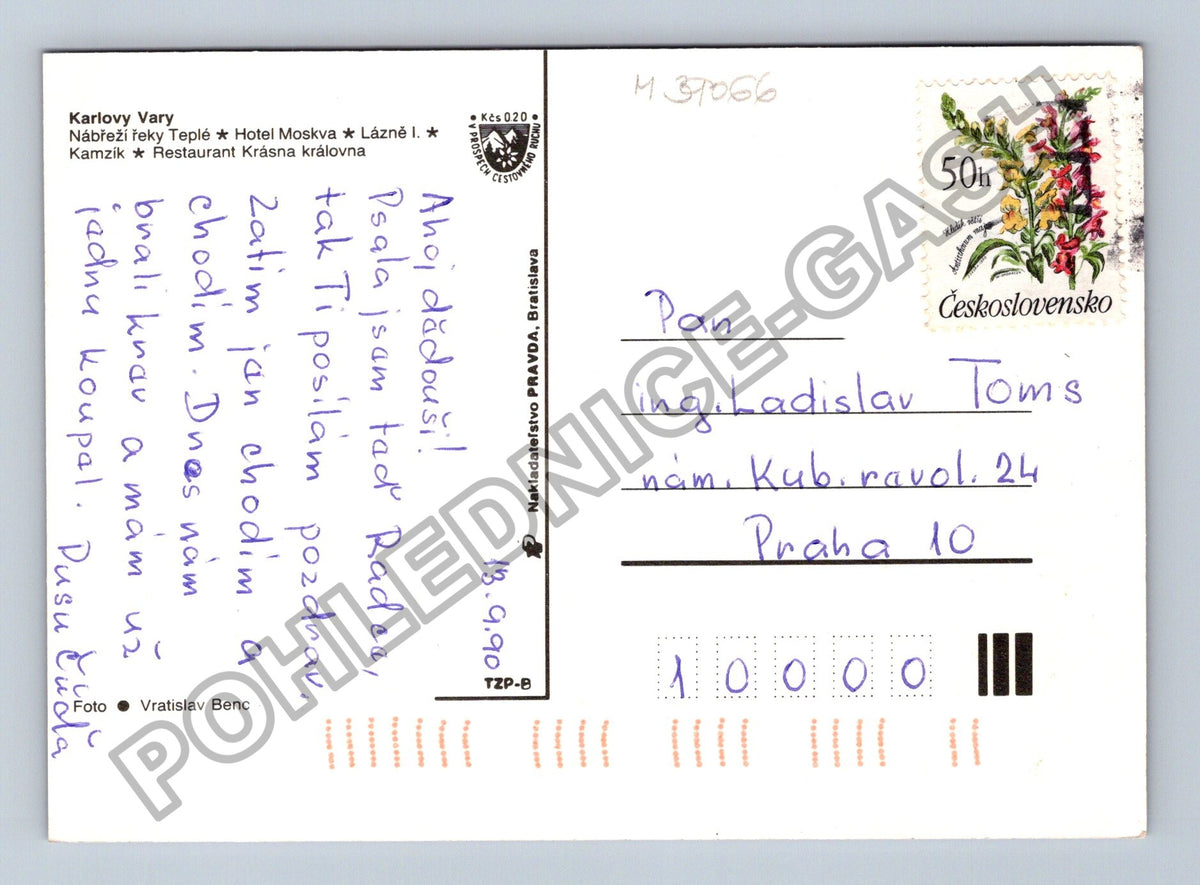 Karlovy Vary
Nábřeží řeky Teplé ★ Hotel Moskva ★ Lázně I. ★
Kamzík ★ Restaurant Krásna královna
Kčs 0.20
V PROSPĚCH CESTOVNÉHO RUCHU
13.9.90
Ahoj dědouši!
Psala jsam taď Radce,
tak Ti posílám pozdrav.
Zatim jan chodím a
chodím. Dnes nám
brali krav a mám už
jadnu koupal.
Nakladateľstvo PRAVDA, Bratislava
TZP-B
Foto ● Vratislav Benc
M 37066
50h
Antirrhinum
Československo
Pan
ing. Ladislav Toms
nám. Kub. ravol. 24
Praha 10
1 0 0 0 0
POHLEDNICE-GASH